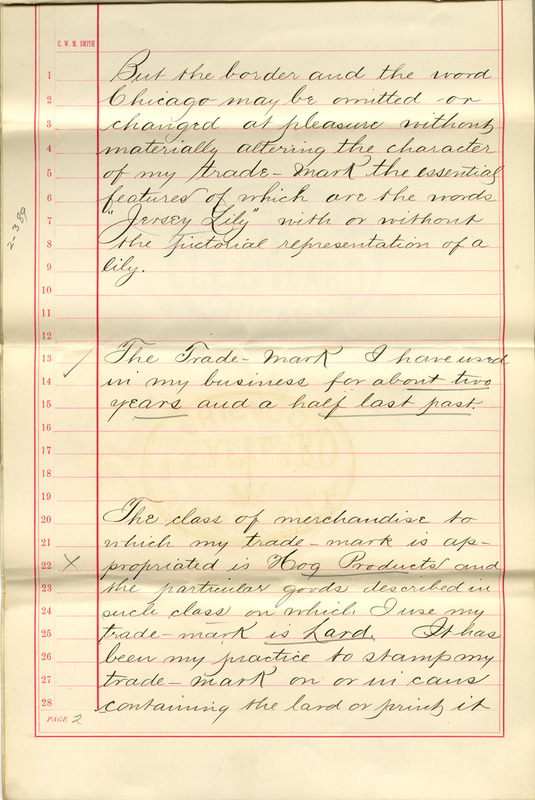 C. W. M. SMITH
1 But the border and the word
2 Chicago may be omitted or
3 changed at pleasure without
4 materially altering the character
5 of my trade-mark the essential
6 features of which are the words
7 "Jersey Lily" with or without
8 the pictorial representation of a
9 lily.
10
11
12
13 The Trade-Mark I have used
14 in my business for about two
15 years and a half last past.
16
17
18
19
20 The class of merchandise to
21 which my trade-mark is ap-
22 X propriated is Hog Products and
23 the particular goods described in
24 such class on which I use my
25 trade-mark is Lard. It has
26 been my practice to stamp my
27 trade-mark on or in cans
28 containing the lard or print it
PAGE 2
2-3 89